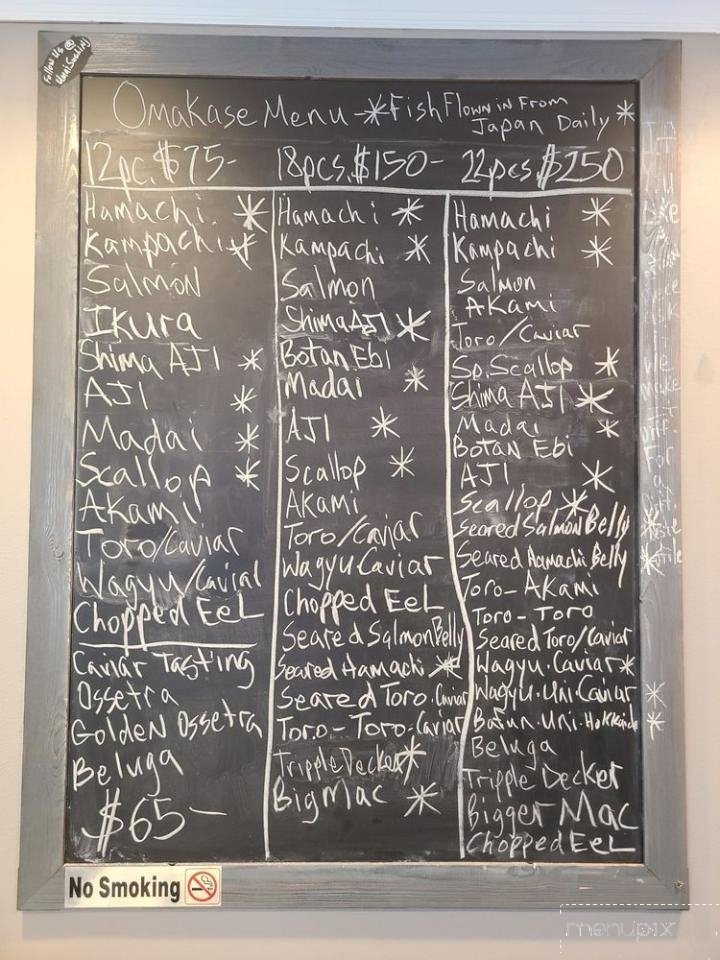 Follow Us @
Omakase Menu - *Fish Flown in From
Japan Daily *
12pc. $75-
Hamachi. *
Kampachi *
Salmon
Ikura
Shima AJI *
AJI *
Madai *
Scallop *
Akami
Toro/Caviar
Wagyu/Caviar
Chopped EeL
Caviar Tasting
Ossetra
Golden Ossetra
Beluga
$65-
18pcs. $150-
Hamachi *
Kampachi *
Salmon
Shima AJI *
Botan Ebi
Madai *
AJI *
Scallop *
Akami
Toro/Caviar
Wagyu Caviar
Chopped EeL
Seared Salmon Belly
Seared Hamachi *
Seared Toro.Caviar
Toro-Toro-Caviar
Tripple Decker *
Big Mac *
22pcs. $250
Hamachi *
Kampachi *
Salmon
Akami
Toro/Caviar
Sp. Scallop *
Shima AJI *
Madai *
Botan Ebi
AJI *
Scallop *
Seared Salmon Belly *
Seared Hamachi Belly *
Toro-Akami
Toro-Toro
Seared Toro/Caviar
Wagyu.Caviar *
Wagyu.Uni.Caviar *
Bafun.Uni.Hokkaido *
Beluga
Tripple Decker
Bigger Mac
Chopped EeL
We
make
it
For
a
No Smoking
menupix